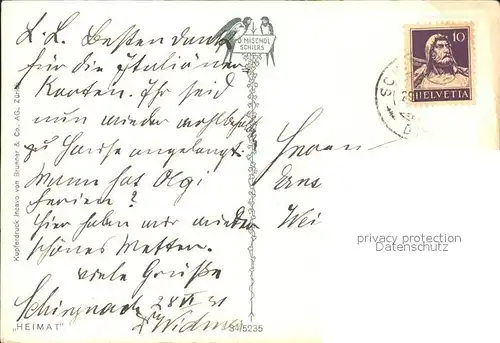 L. L. Besten Dank
für die Italiener-
Karten. Ihr seid
nun wieder wohlbeh.
zu Hause angelangt.
Wann hat Olgi
Ferien?
Hier haben wir wieder
schönes Wetter.
viele Grüße
Schinznach 28 VI 31
Widmer
Herrn
Wei
D. MISCHOL
SCHIERS
10
HELVETIA
Kupferdruck Incavo von Brunner & Co. AG. Züri
„HEIMAT"
5235
privacy protection
www.oldthing.com